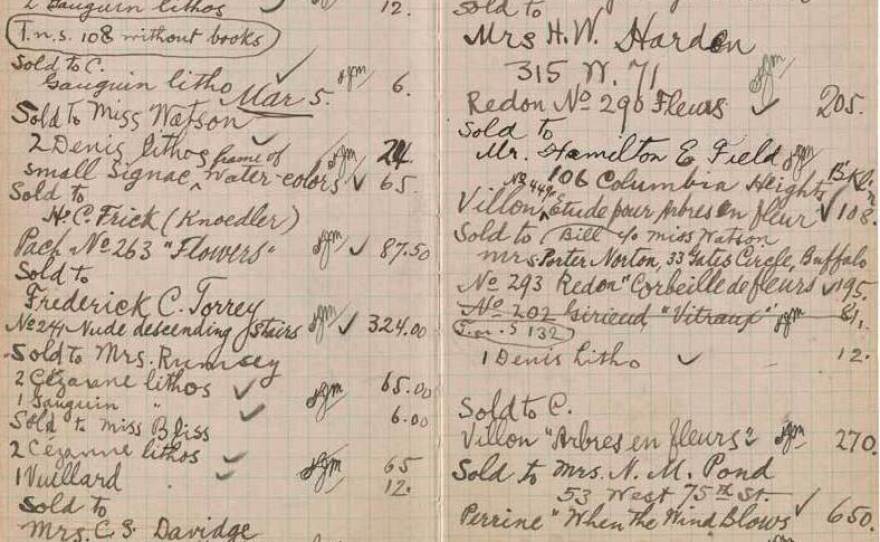 2 Gauguin lithos 12.
T.n.s. 108 without books
Sold to C.
Gauguin litho 6.
Mar 5.
Sold to Miss Watson
2 Denis lithos 24.
frame of
small Signac water-colors 65.
Sold to
H. C. Frick (Knoedler)
Pach No 263 "Flowers" 87.50
Sold to
Frederick C. Torrey
No 241 Nude descending stairs 324.00
Sold to Mrs. Rumsey
2 Cézanne lithos 65.00
1 Gauguin " 6.00
Sold to Miss Bliss
2 Cézanne lithos 65
1 Vuillard 12.
Sold to
Mrs. C. S. Davidge
Sold to
Mrs H. W. Harden
315 W. 71
Redon No 290 Fleurs 205.
Sold to
Mr. Hamilton E Field
106 Columbia Heights B'kl.n
No 449
Villon, Etude pour Arbres en fleur 108.
Sold to (Bill c/o Miss Watson
Mrs. Porter Norton, 33 Gates Circle, Buffalo
No 293 Redon "Corbeille de fleurs 195.
No 202 Girieud "Vitraux" 81.
T.n.s 132
1 Denis litho 12.
Sold to C.
Villon "Arbres en fleurs" 270.
Sold to Mrs. N. M. Pond
53 West 75th St.
Perrine "When the Wind Blows" 650.